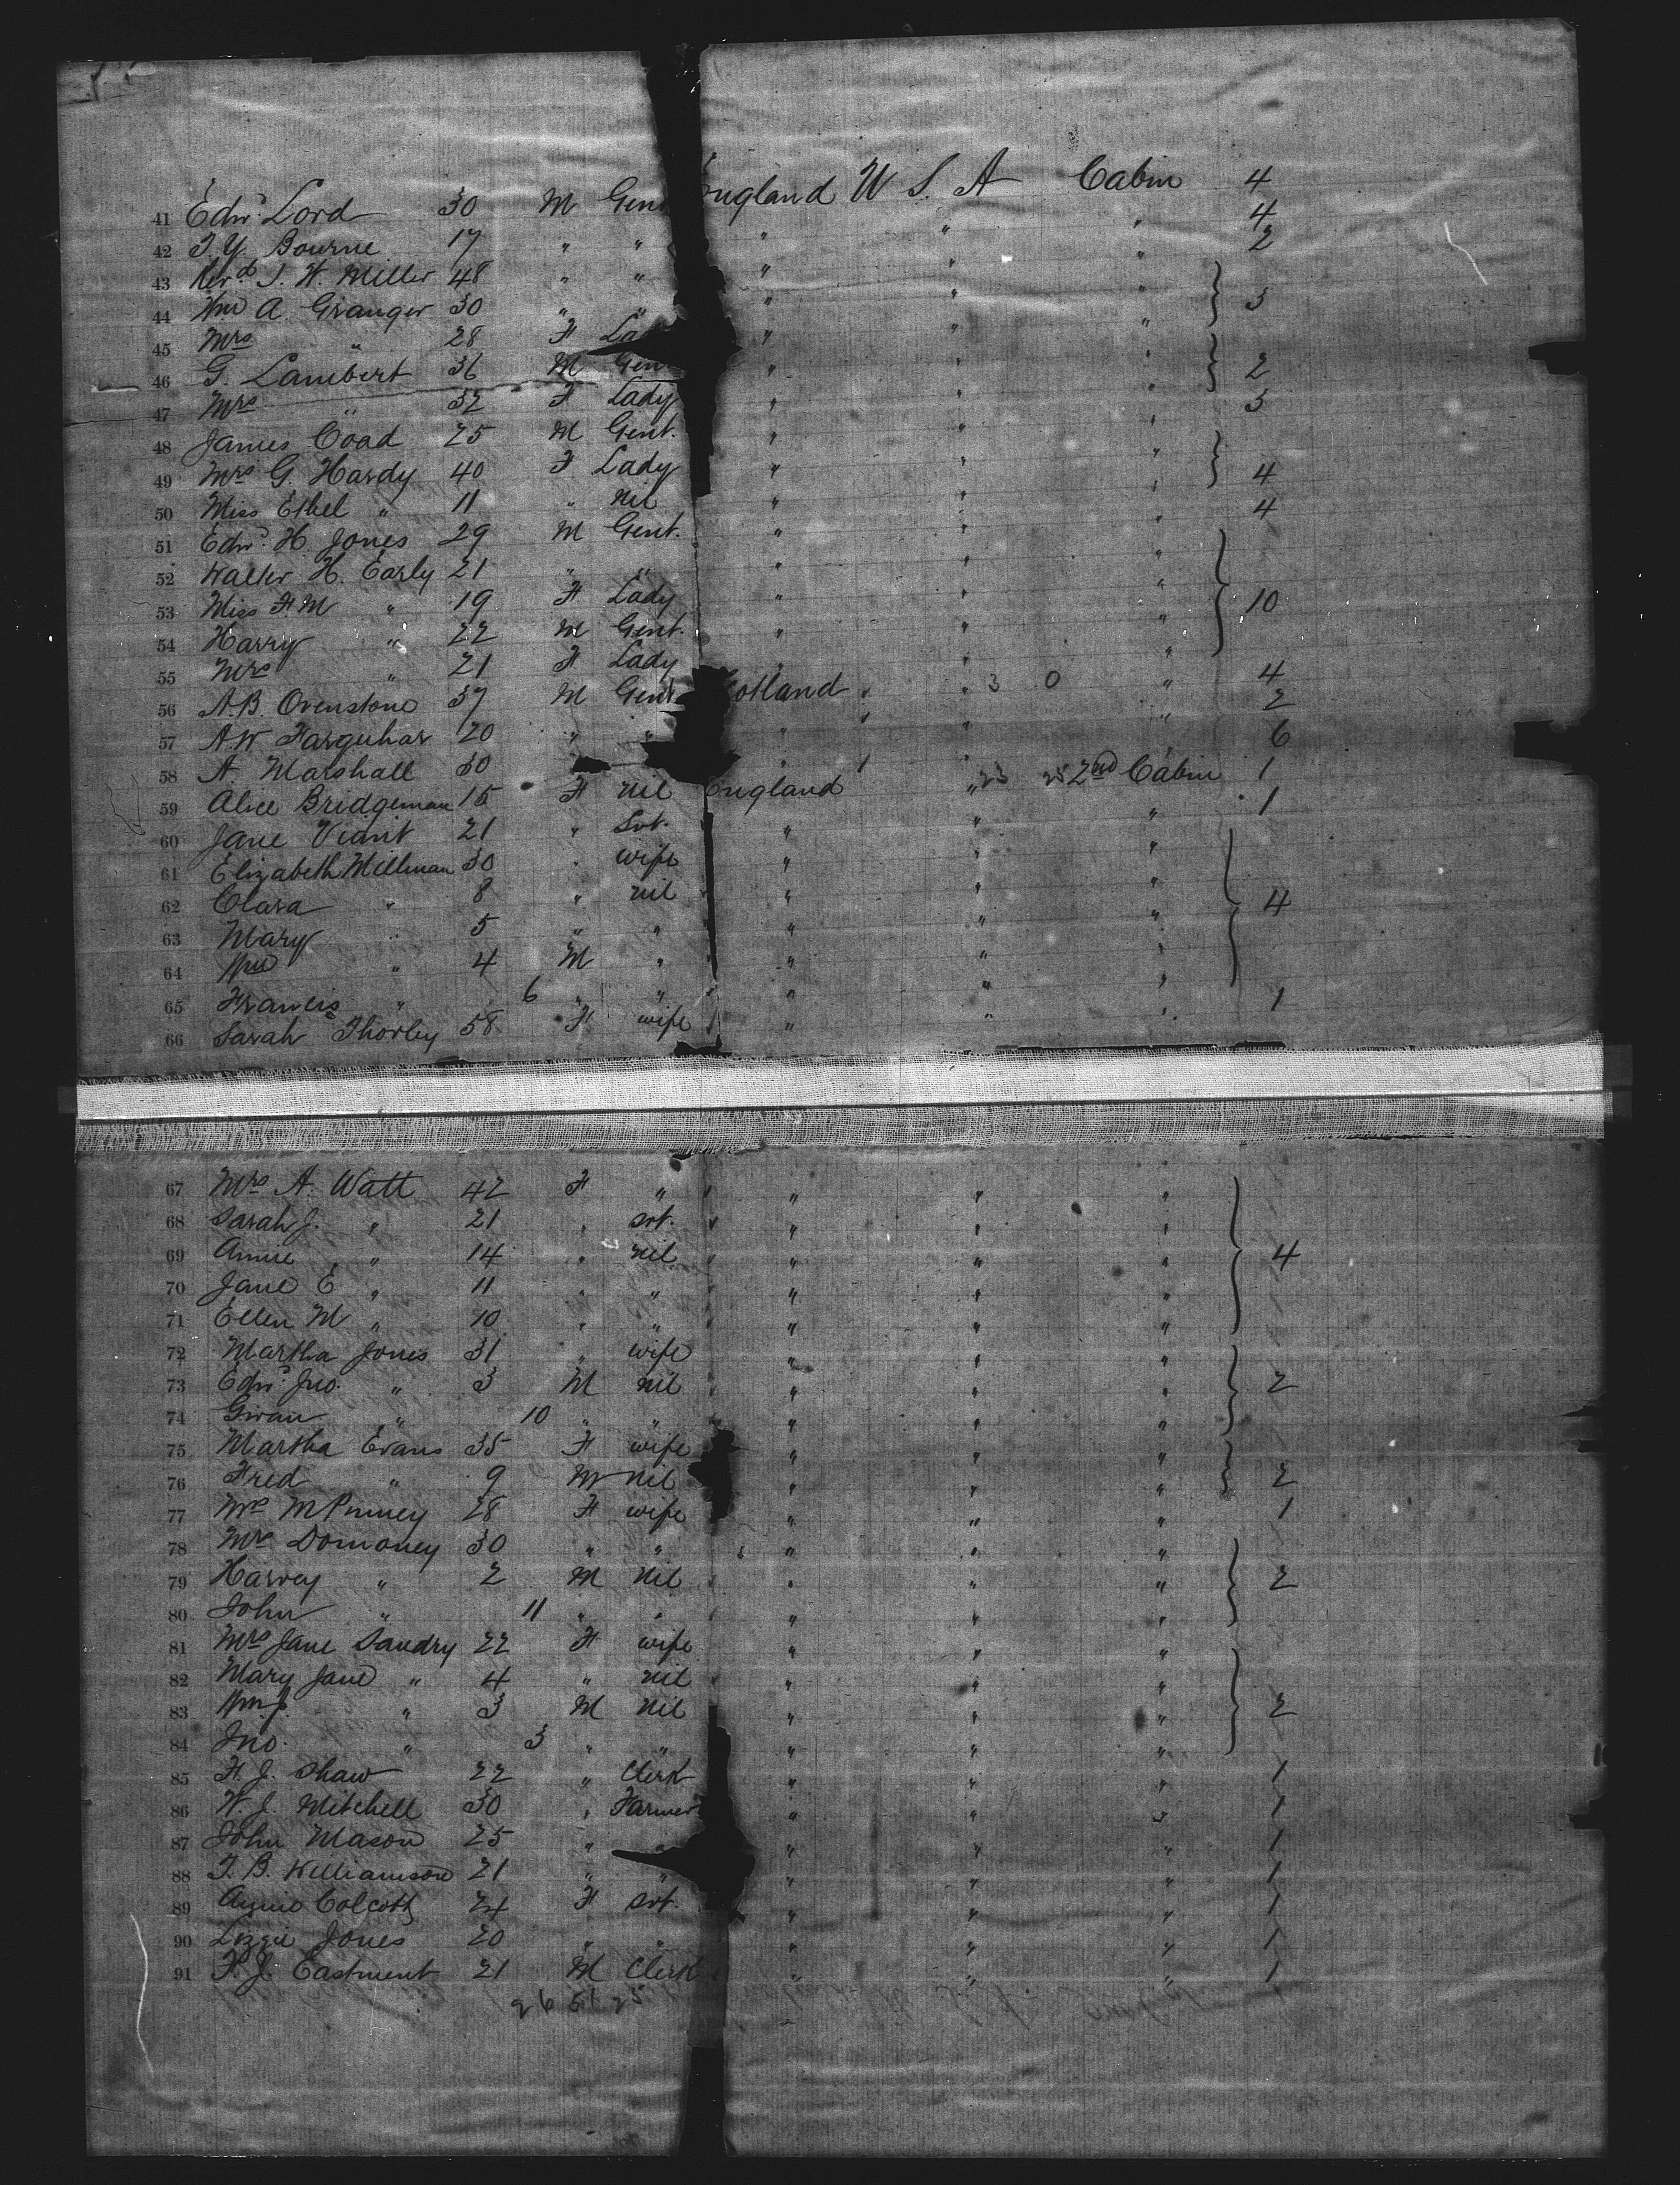 41 Edwd. Lord 30 M Gent England U S A Cabin 4
42 T. Y. Bourne 17 " " " " " 4
43 Revd. J. W. Miller 48 " " " " " 2
44 Wm A. Granger 30 " " " " " 3
45 Mrs " 28 F La " " "
46 G. Lambert 36 M Gen " " " 2
47 Mrs " 32 F Lady " " "
48 James Coad 25 M Gent. " " " 3
49 Mrs G. Hardy 40 F Lady " " " 4
50 Miss Ethel " 11 " nil " " "
51 Edwd. H. Jones 29 M Gent. " " " 4
52 Walter H. Early 21 " " " " " 10
53 Miss F M " 19 F Lady " " "
54 Harry " 22 M Gent. " " "
55 Mrs " 21 F Lady " "
56 A. B. Ovenstone 37 M Gent otland " " 3 0 " 4
57 A. W. Farquhar 20 " " " " " 2
58 A. Marshall 30 " " 6
59 Alice Bridgeman 15 F nil England " 23 25 2nd Cabin 1
60 Jane Viant 21 " Svt. " " " 1
61 Elizabeth Millman 30 " wife " " " 4
62 Clara " 8 " nil " " "
63 Mary " 5 " " " " "
64 Wm " 4 M " " " "
65 Francis " 6 " " " " "
66 Sarah Thorley 58 F wife " " " 1
67 Mrs A. Watt 42 F " " " "
68 Sarah J. " 21 " svt. " " "
69 Annie " 14 " nil " " " 4
70 Jane E " 11 " " " " "
71 Ellen M " 10 " " " " "
72 Martha Jones 31 " wife " " "
73 Edwd. Jno. " 3 M nil " " " 2
74 " 10 " " " " "
75 Martha Evans 35 F wife " " "
76 Fred " 9 M nil " " " 2
77 Mrs 28 F wife " " " 1
78 Mrs Domoney 30 " " " " "
79 Harvey " 2 M nil " " " 2
80 John " 11 " " " " "
81 Mrs Jane Sandry 22 F wife " " "
82 Mary Jane " 4 " nil " " "
83 Wm. J. " 3 M nil " " " 2
84 Jno. " 3 " " " " "
85 F. J. Shaw 22 " Clerk " " " 1
86 W. J. Mitchell 30 " Farmer " " " 1
87 John Mason 25 " " " " " 1
88 T. B. Williamson 21 " " " " " 1
89 Annie Colcott 24 F svt. " " " 1
90 Lizzie Jones 20 " " " " " 1
91 F. J. Eastment 21 M Clerk " " " 1
26 51 25